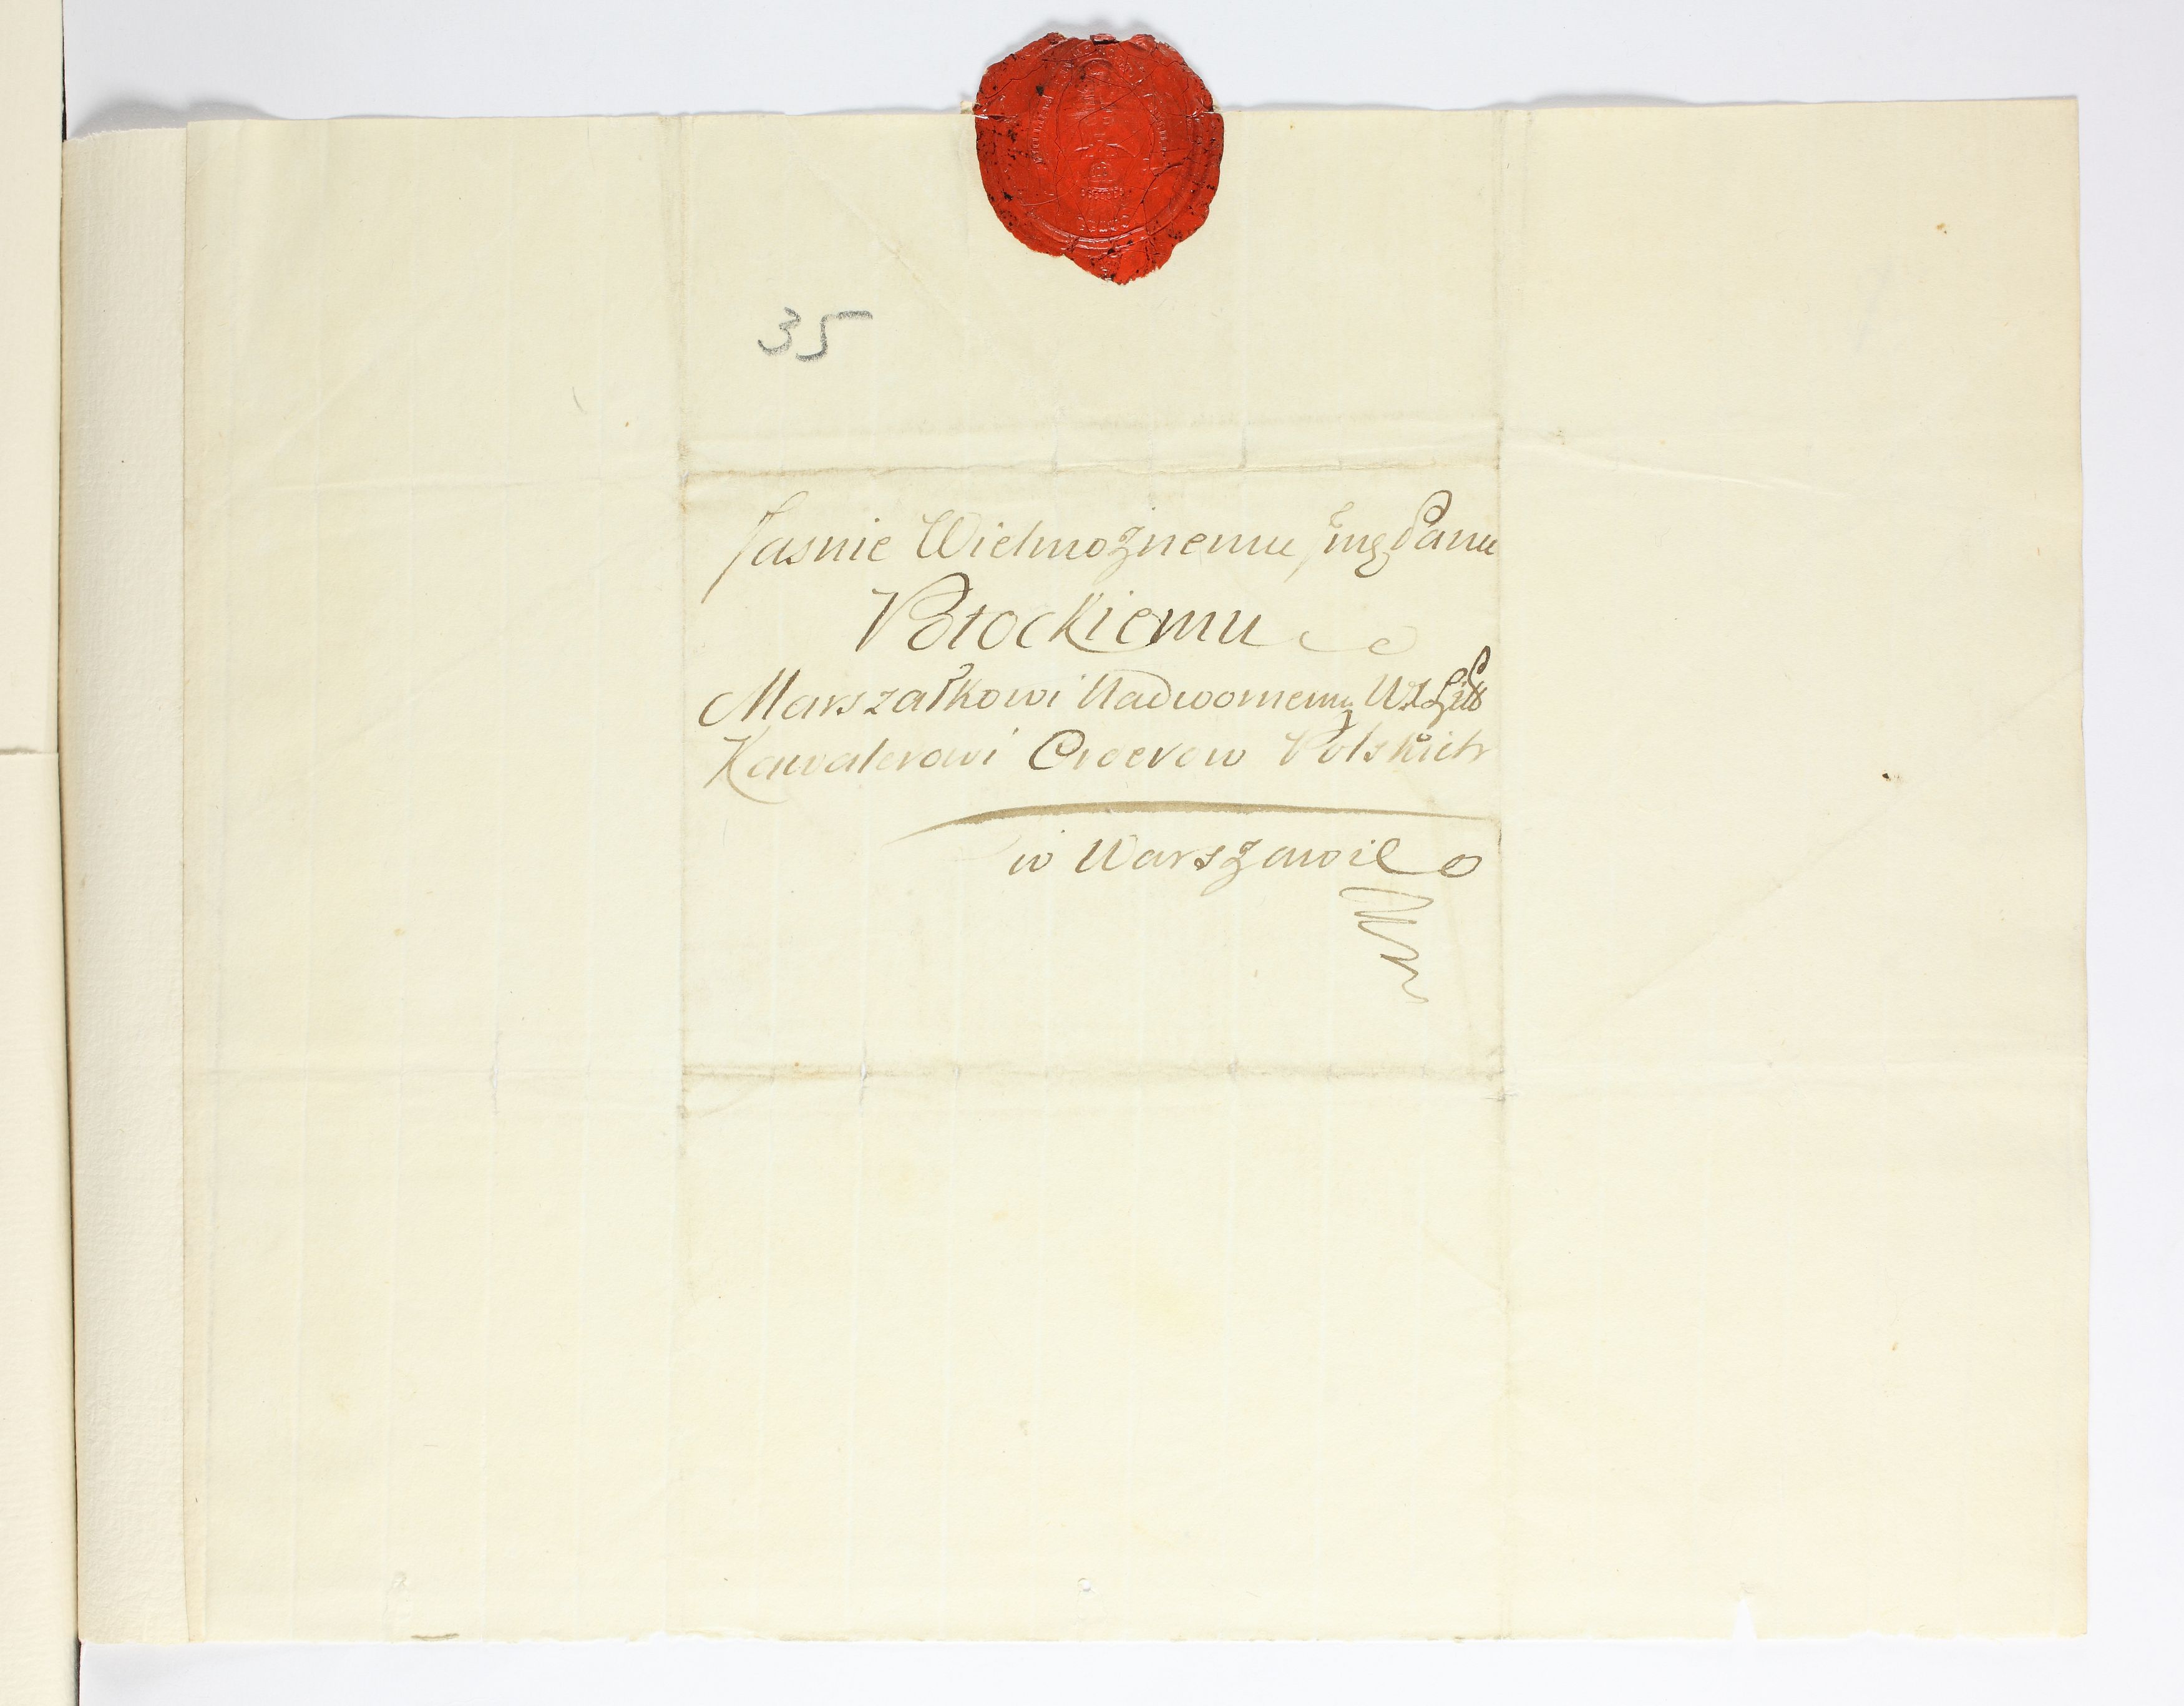 35
Jasnie Wielmoznemu Jmę Panu
Potockiemu
Marszałkowi Nadwornemu W. X. Litt
Kawalerowi Orderow Polskich
w Warszawie